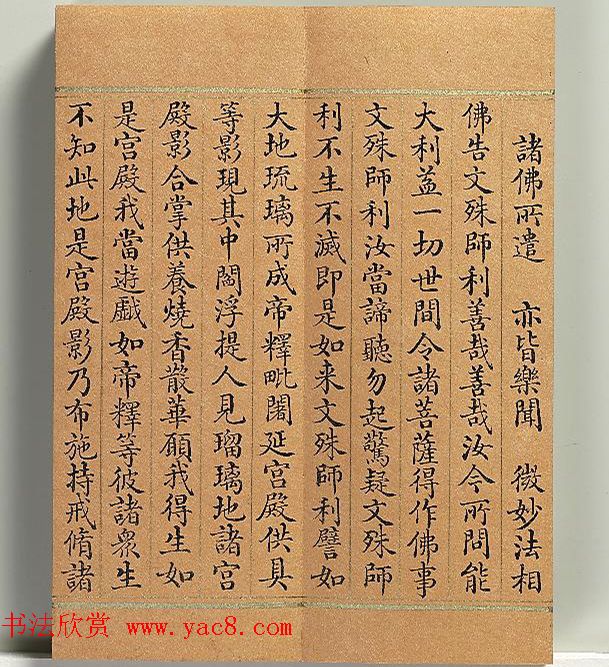 諸佛所遣　亦皆樂聞　微妙法相
佛告文殊師利善哉善哉汝今所問能
大利益一切世間令諸菩薩得作佛事
文殊師利汝當諦聽勿起驚疑文殊師
利不生不滅即是如来文殊師利譬如
大地琉璃所成帝釋毗闍延宮殿供具
等影現其中閻浮提人見瑠璃地諸宮
殿影合掌供養燒香散華願我得生如
是宮殿我當遊戲如帝釋等彼諸眾生
不知此地是宮殿影乃布施持戒脩諸
书法欣赏 www.yac8.com